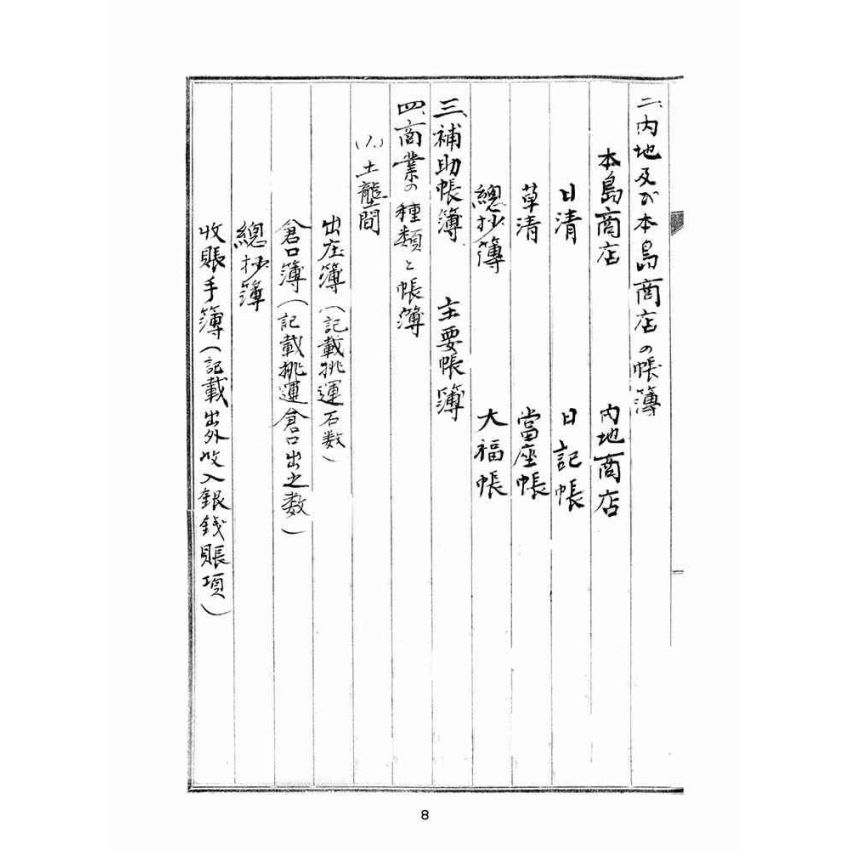 二、内地及ビ本島商店の帳簿
本島商店　内地商店
日清　日記帳
草清　當座帳
總抄簿　大福帳
三、補助帳簿　主要帳簿
四、商業の種類と帳簿
(1)土壟間
出庄簿(記載挑運石数)
倉口簿(記載挑運倉口出之数)
總抄簿
收賬手簿(記載出外收入銀錢賬項)
8